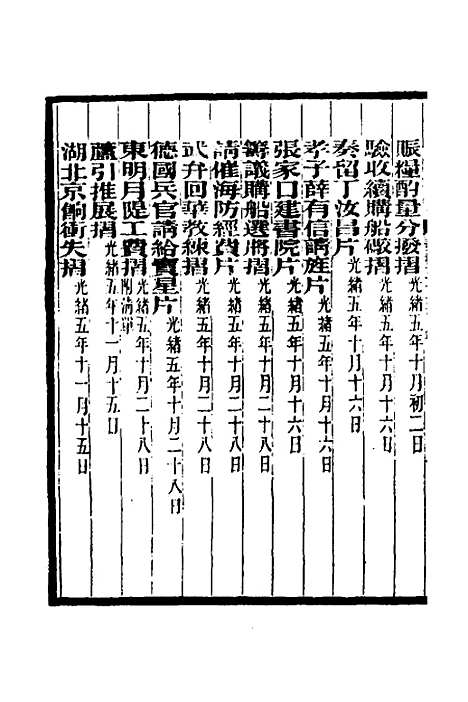 賑糧酌量分撥摺光緒五年十月初二日
驗收續購船礮摺光緒五年十月十六日
奏留丁汝昌片光緒五年十月十六日
孝子薛有信請旌片光緒五年十月十六日
張家口建書院片光緒五年十月十六日
籌議購船選將摺光緒五年十月二十八日
請催海防經費片光緒五年十月二十八日
武弁回華教練摺光緒五年十月二十八日
德國兵官請給寶星片光緒五年十月二十八日
東明月隄工費摺光緒五年十月二十八日附清單
蘆引推展摺光緒五年十一月十五日
湖北京餉衝失摺光緒五年十一月十五日